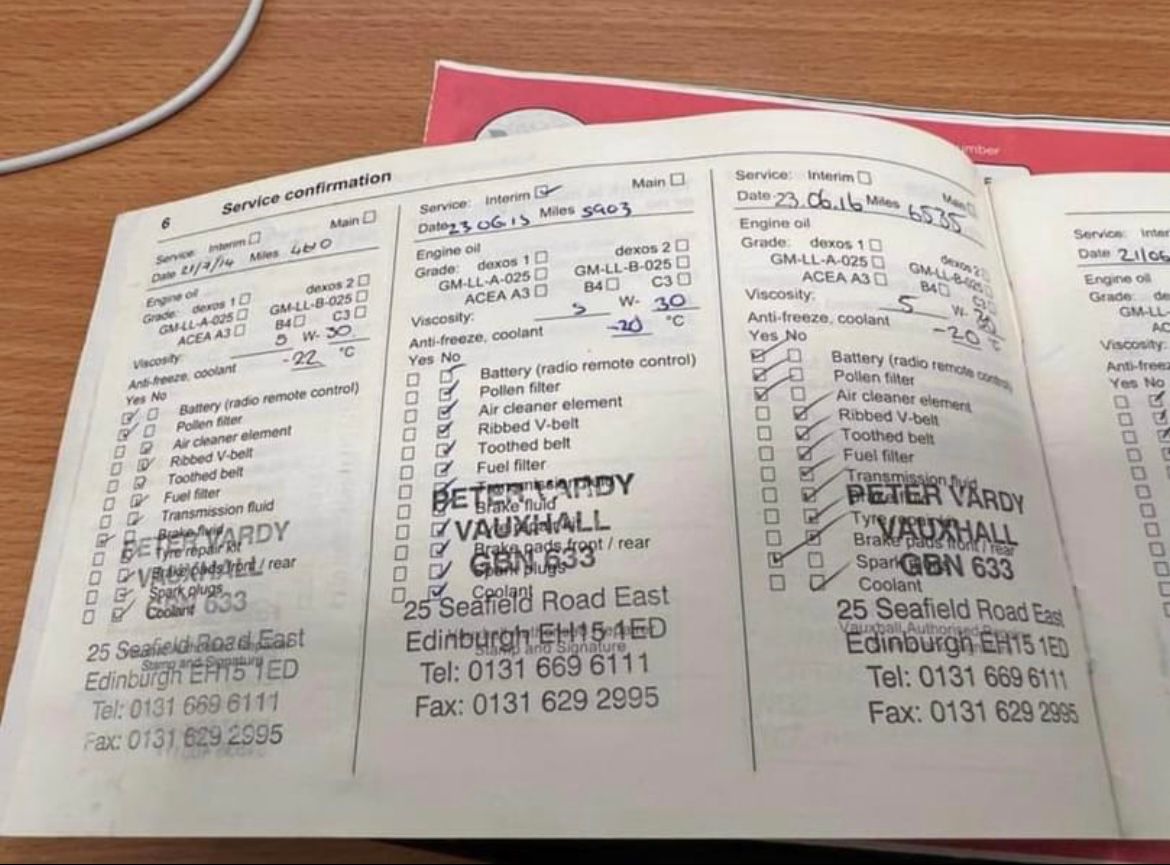 6 Service confirmation
Service: Interim Main
Date 21/7/14 Miles
Engine oil
Grade: dexos 1 dexos 2
GM-LL-A-025 GM-LL-B-025
ACEA A3 B4 C3
Viscosity: 5 W- 30
Anti-freeze, coolant -22 °C
Yes No
Battery (radio remote control)
Pollen filter
Air cleaner element
Ribbed V-belt
Toothed belt
Fuel filter
Transmission fluid
Brake fluid
Tyre repair kit
Brake pads front / rear
Spark plugs
Coolant
PETER VARDY
VAUXHALL
GBN 633
25 Seafield Road East
Stamp and Signature
Edinburgh EH15 1ED
Tel: 0131 669 6111
Fax: 0131 629 2995
Service: Interim Main
Date 23 06 15 Miles 5903
Engine oil
Grade: dexos 1 dexos 2
GM-LL-A-025 GM-LL-B-025
ACEA A3 B4 C3
Viscosity: 5 W- 30
Anti-freeze, coolant -20 °C
Yes No
Battery (radio remote control)
Pollen filter
Air cleaner element
Ribbed V-belt
Toothed belt
Fuel filter
Transmission fluid
Brake fluid
Brake pads front / rear
Spark plugs
Coolant
PETER VARDY
VAUXHALL
GBN 633
25 Seafield Road East
Edinburgh EH15 1ED
Stamp and Signature
Tel: 0131 669 6111
Fax: 0131 629 2995
Service: Interim Main
Date 23.06.16 Miles 6535
Engine oil
Grade: dexos 1 dexos 2
GM-LL-A-025 GM-LL-B-025
ACEA A3 B4 C3
Viscosity: 5 W- 30
Anti-freeze, coolant -20 °C
Yes No
Battery (radio remote control)
Pollen filter
Air cleaner element
Ribbed V-belt
Toothed belt
Fuel filter
Transmission fluid
Brake pads front / rear
Spark
Coolant
PETER VARDY
VAUXHALL
GBN 633
25 Seafield Road East
Vauxhall Authorised
Edinburgh EH15 1ED
Tel: 0131 669 6111
Fax: 0131 629 2995
Service: Inter
Date 21/06
Engine oil
Grade: de
GM-LL
AC
Viscosity:
Anti-freez
Yes No
umber